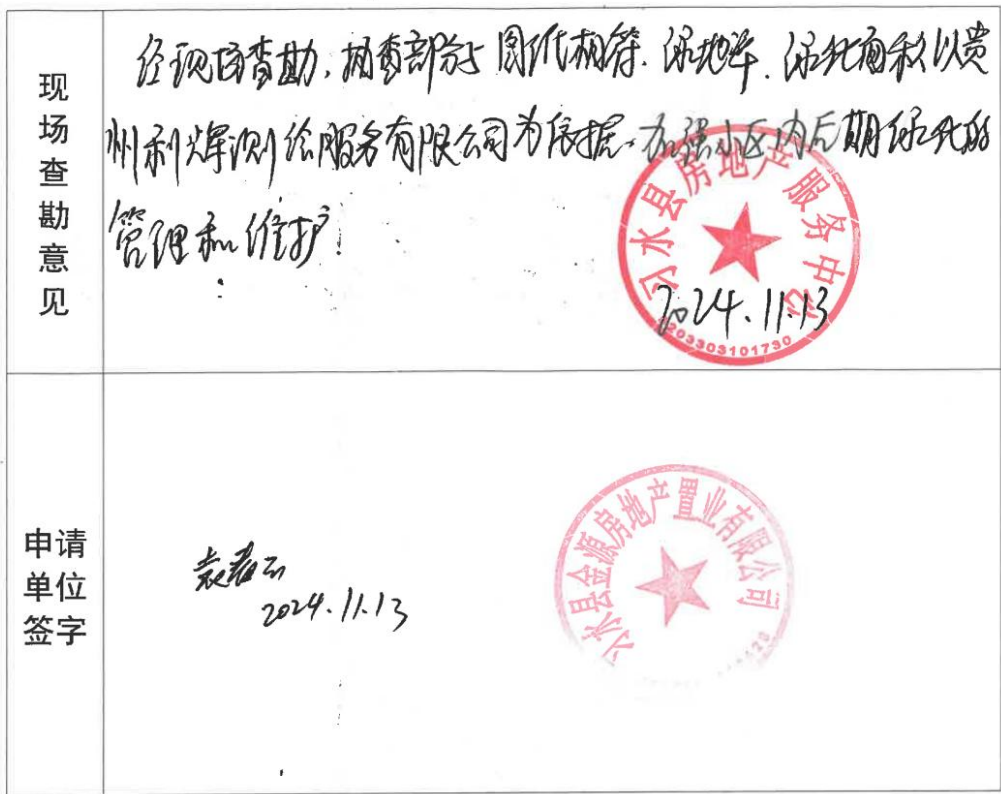 现场查勘意见
经现场查勘,抽查部分与图纸相符.绿地率.绿化面积以贵
州利辉测绘服务有限公司为依据。加强小区内后期绿化的
管理和维护!
习水县房地产服务中心
2024.11.13
5203303101730
申请
单位
签字
2024.11.13
习水县金源房地产置业有限公司